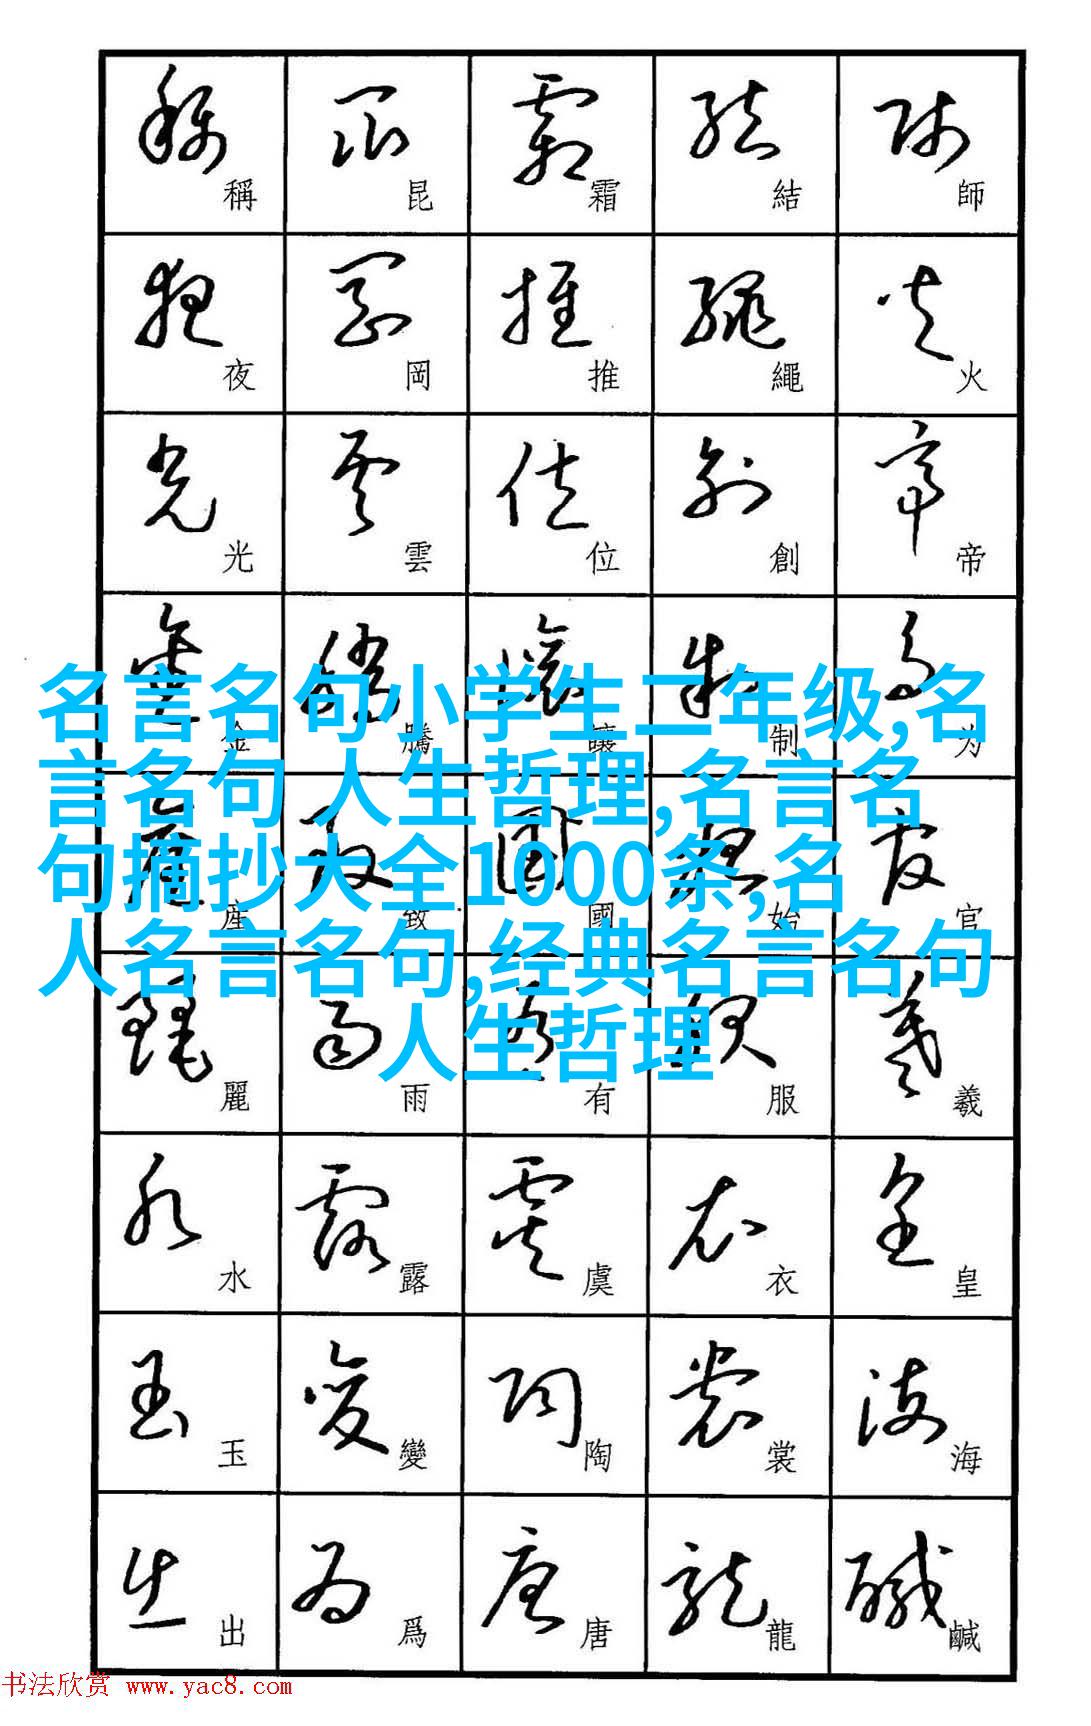 師火帝为官羲皇海鹹
結繩創制始服衣裳龍
霜推位讓國有虞陶唐
昆岡雲騰致雨露變爲
稱夜光金座麗水玉出
名言名句小学生二年级,名
言名句 人生哲理,名言名
句摘抄大全1000条,名
人名言名句,经典名言名句
人生哲理
书法欣赏 www.yac8.com